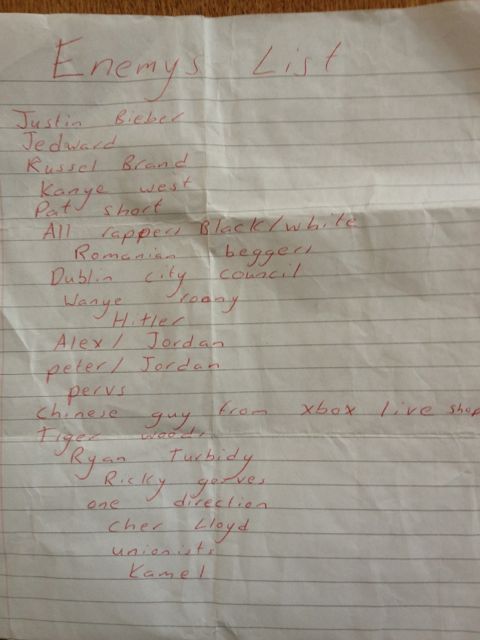 Enemys List
Justin Bieber
Jedward
Russel Brand
Kanye west
Pat short
All rappers Black/white
Romanian beggers
Dublin city council
Wanye roony
Hitler
Alex/ Jordan
peter/ Jordan
pervs
Chinese guy from xbox live shop
Tiger woods
Ryan Turbidy
Ricky gerves
one direction
Cher Lloyd
unionists
Kamel